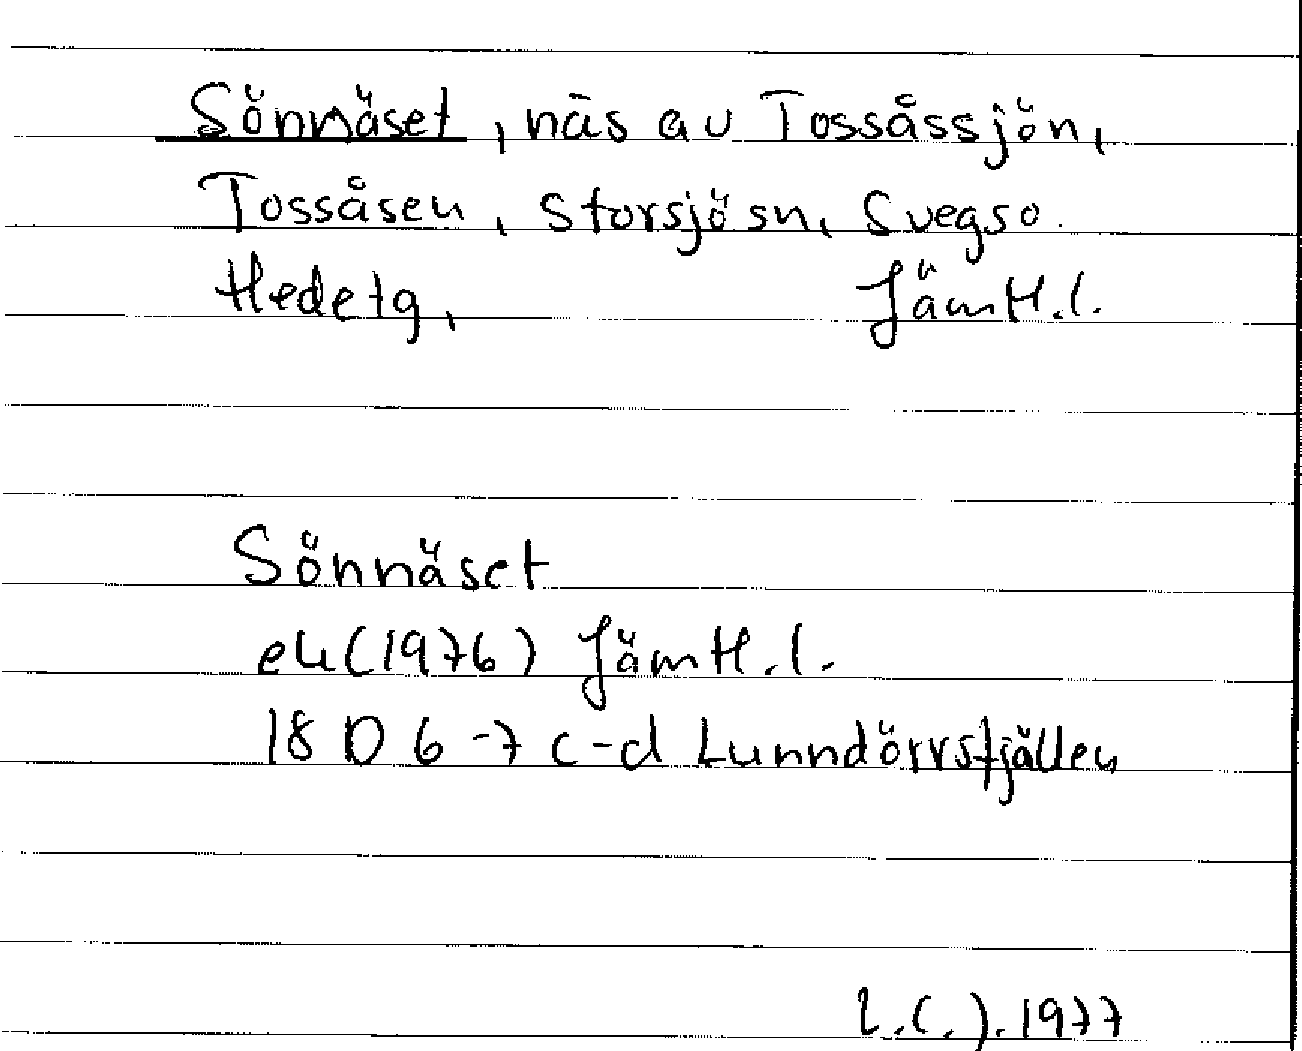 Sönnäset, näs av Tossåssjön,
Tossåsen, Storsjö sn, Svegs o.
Hede tg, Jämtl.l.
Sönnäset
ek (1976) Jämtl.l.
18 D 6-7 c-d Lunndörrsfjällen
1977